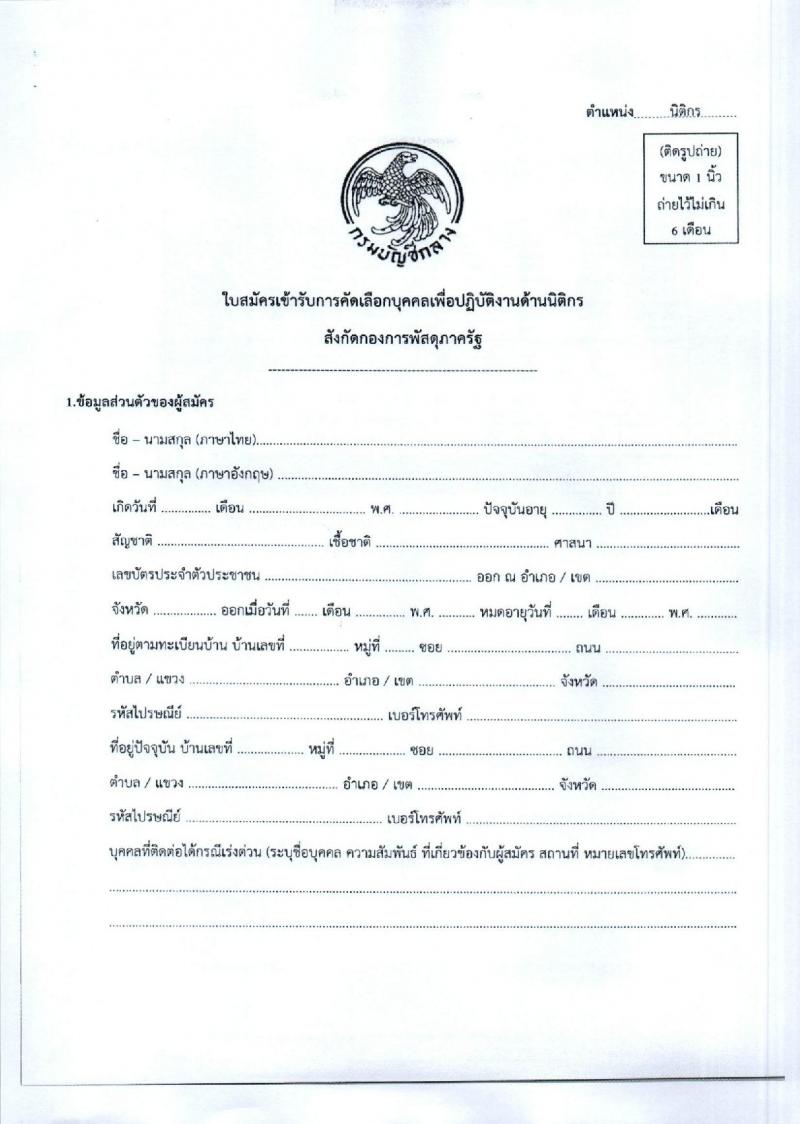 ตำแหน่ง............นิติกร............
(ติดรูปถ่าย)
ขนาด 1 นิ้ว
ถ่ายไว้ไม่เกิน
6 เดือน
กรมบัญชีกลาง
ใบสมัครเข้ารับการคัดเลือกบุคคลเพื่อปฏิบัติงานด้านนิติกร
สังกัดกองการพัสดุภาครัฐ
1.ข้อมูลส่วนตัวของผู้สมัคร
ชื่อ – นามสกุล (ภาษาไทย)............................................................
ชื่อ – นามสกุล (ภาษาอังกฤษ) ............................................................
เกิดวันที่ ............... เดือน ................................... พ.ศ. ........................ ปัจจุบันอายุ ............... ปี ...........................เดือน
สัญชาติ .................................................. เชื้อชาติ .................................................... ศาสนา ...........................................
เลขบัตรประจำตัวประชาชน .............................................................. ออก ณ อำเภอ / เขต ...........................................
จังหวัด ................... ออกเมื่อวันที่ ....... เดือน ............... พ.ศ. ........... หมดอายุวันที่ ........ เดือน ............. พ.ศ. ............
ที่อยู่ตามทะเบียนบ้าน บ้านเลขที่ .................. หมู่ที่ ......... ซอย ..................................... ถนน ........................................
ตำบล / แขวง ............................................. อำเภอ / เขต ......................................... จังหวัด ........................................
รหัสไปรษณีย์ ........................................................... เบอร์โทรศัพท์ .................................................................................
ที่อยู่ปัจจุบัน บ้านเลขที่ .................... หมู่ที่ .................... ซอย ..................................... ถนน ..........................................
ตำบล / แขวง ............................................. อำเภอ / เขต ......................................... จังหวัด ........................................
รหัสไปรษณีย์ ........................................................... เบอร์โทรศัพท์ .................................................................................
บุคคลที่ติดต่อได้กรณีเร่งด่วน (ระบุชื่อบุคคล ความสัมพันธ์ ที่เกี่ยวข้องกับผู้สมัคร สถานที่ หมายเลขโทรศัพท์)...............